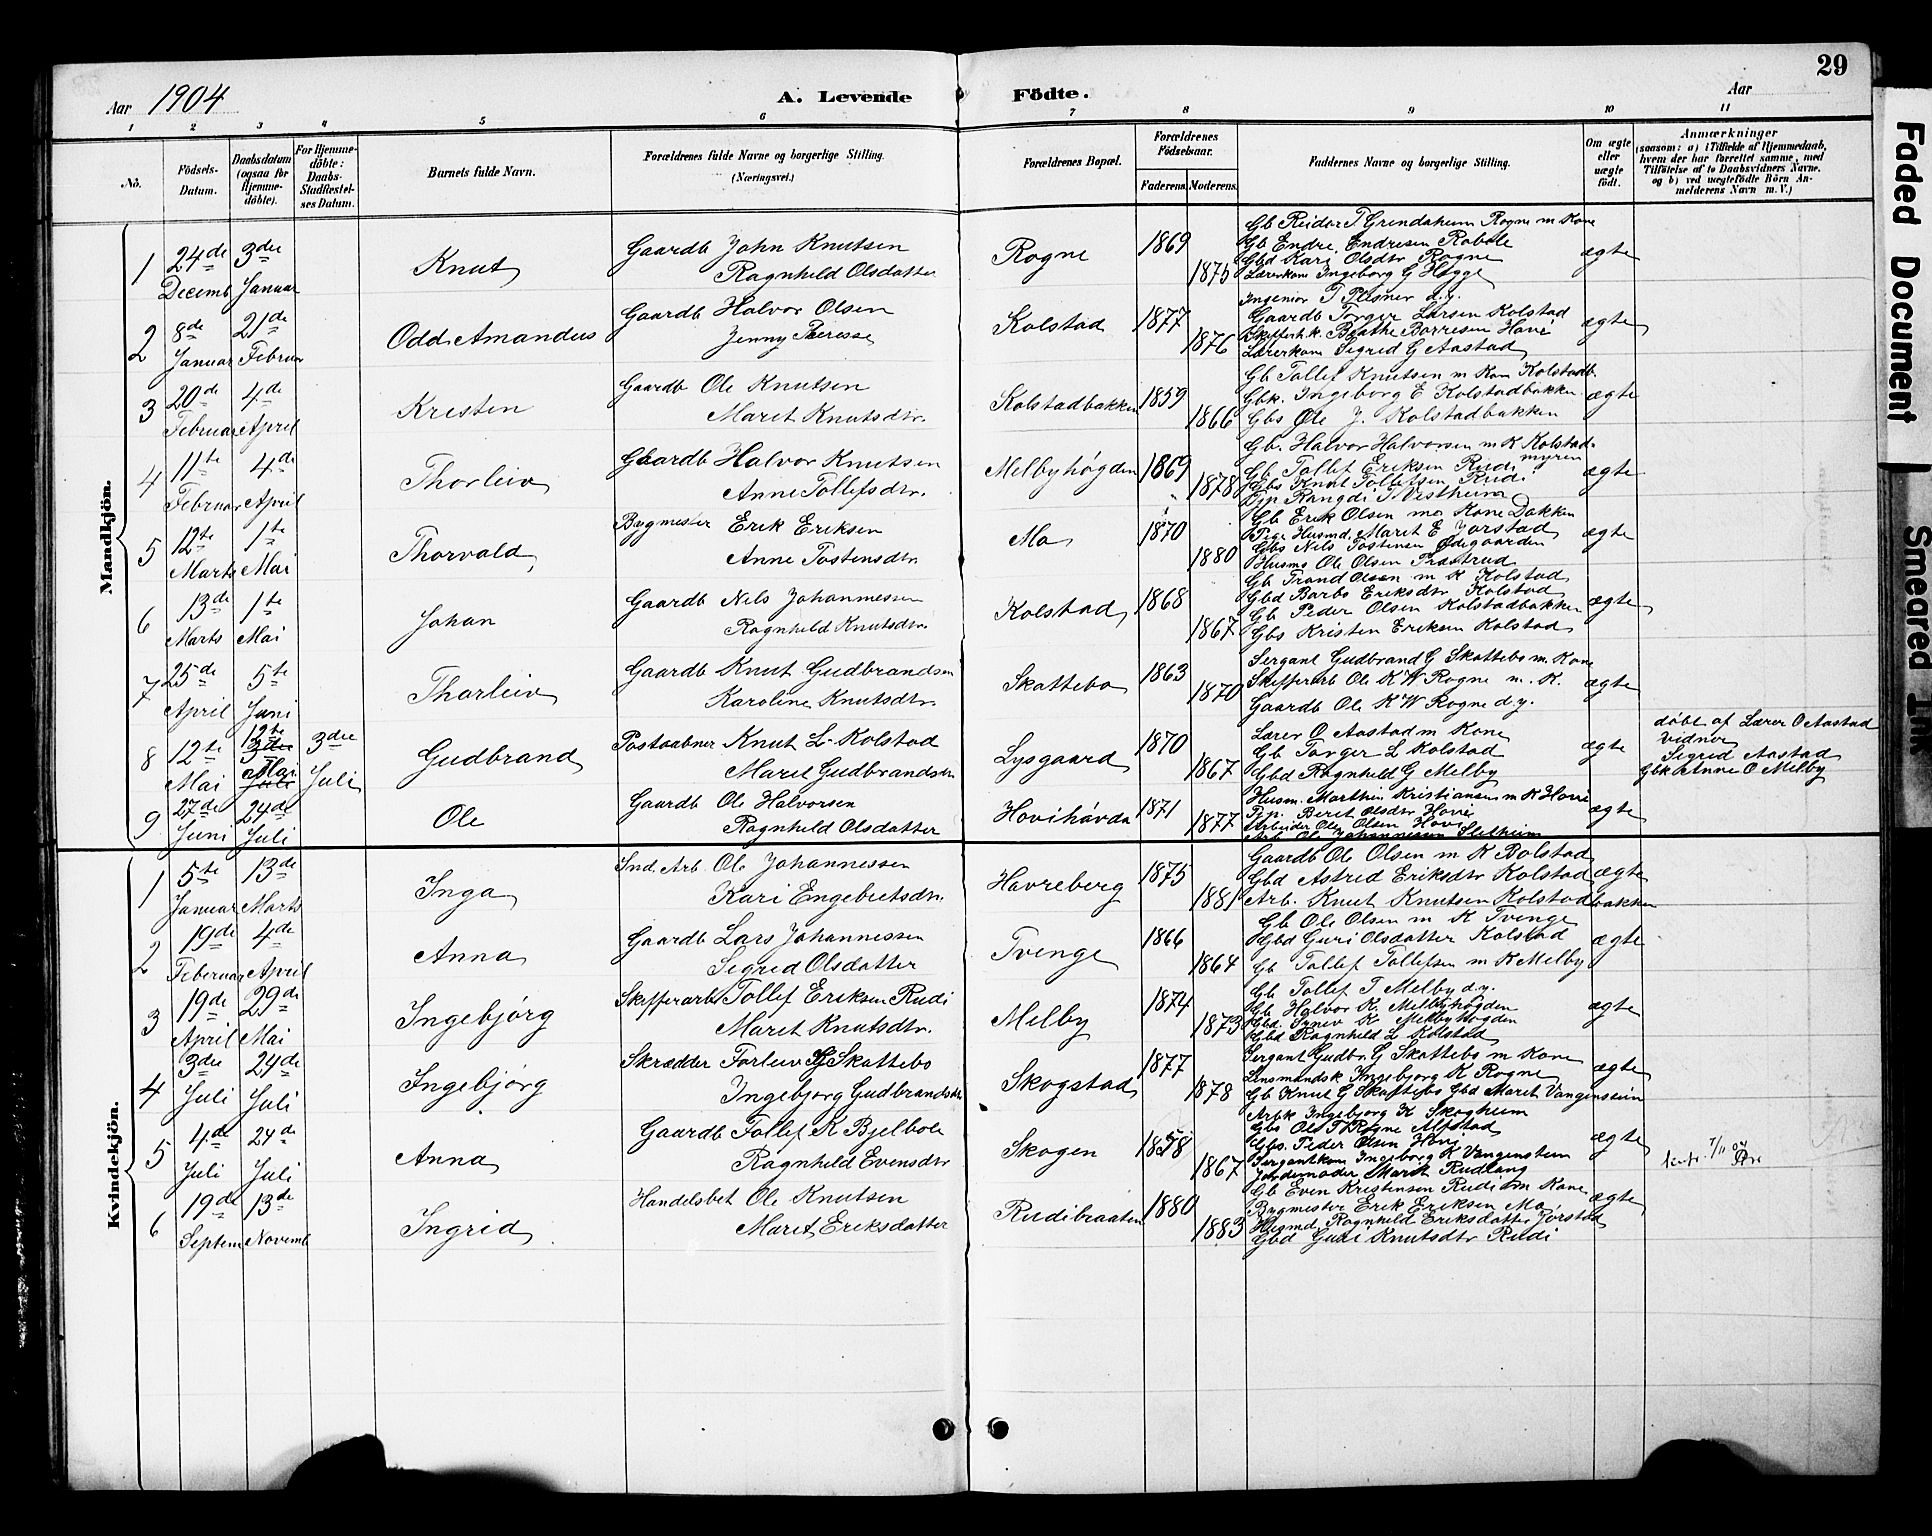 29
Aar 1904
A. Levende Födte.
Aar
1 2 3 4 5 6 7 8 9 10 11
No.
Födsels-Datum.
Daabsdatum (ogsaa for Hjemme-döbte).
For Hjemme-döbte: Daabs-Stadfæstel-ses Datum.
Barnets fulde Navn.
Forældrenes fulde Navne og borgerlige Stilling.
(Næringsvei.)
Forældrenes Bopæl.
Forældrenes Födselsaar.
Faderens. Moderens.
Faddernes Navne og borgerlige Stilling.
Om ægte eller uægte födt.
Anmærkninger
(saasom: a) i Tilfælde af Hjemmedaab, hvem der har forrettet samme, med Tilföielse af to Daabsvidners Navne, og b) ved uægtefödte Börn Anmelderens Navn m. V.)
Mandkjön.
1 24de Decemb 3die Januar Knut Gaardb John Knutsen Ragnheld Olsdatter Rogne 1869 1875 ægte
Gb Reidar T Grendaheim Rogne m Kone
Gb Endre Endresen Robøle
Gbd Kari Olsdtr Rogne
Lærerkone Ingeborg G Hegge
2 8de Januar 21de Februar Odd Amandus Gaardb Halvor Olsen Jenny Therese Kolstad 1877 1876 ægte
Ingeniør T Plesner d.y.
Gaardb Torger Larsen Kolstad
Beathe Borresen Hovi
Lærerkone Sigrid G Aastad
3 20de Februar 4de April Kristen Gaardb Ole Knutsen Marit Knutsdtr. Kolstadbakken 1859 1866 ægte
Gb Tollef Knutsen m Kone Kolstadb.
Gbk. Ingeborg E Kolstadbakken
Gbs Ole J. Kolstadbakken
4 11te Februar 4de April Thorleiv Gaardb Halvor Knutsen Anne Tollefsdtr. Melbyhögden 1869 1878 ægte
Gb. Halvor Halvorsen m K Kolstadmyren
Gb Tollef Eriksen Rudi
Gbs Knut Tollefsen Rudi
Rangdi T Vestheim
5 12te Marts 1te Mai Thorvald Bygmester Erik Eriksen Anne Tostensdtr. Mo 1870 1880 ægte
Gb Erik Olsen m Kone Dokken
Pige Husmd. Marit E Jorstad
Gbs Nils Tostensen Ødegaarden
Husms Ole Olsen Træstrud
6 13de Marts 1te Mai Johan Gaardb Nils Johannessen Ragnheld Knutsdtr. Kolstad 1868 1867 ægte
Gb Trond Olsen m K Kolstad
Gbd Barbo Eriksdtr Kolstad
Gb Peder Olsen Kolstadbakken
Gbs Kristen Eriksen Kolstad
7 25de April 5te Juni Thorleiv Gaardb Knut Gudbrandsen Karoline Knutsdtr. Skattebo 1863 1870 ægte
Sergant Gudbrand G Skattebo m. Kone
Skifferarb Ole K W Rogne m. K.
Gaardb Ole K W Rogne d.y.
8 12te Mai 12te Mai 3die Juli 3die Juli Gudbrand Postaabner Knut L. Kolstad Marit Gudbrandsdtr Lysgaard 1870 1867 ægte
Lærer O Aastad m Kone
Gb Torger L Kolstad
Gbd Ragnheld G Melby
döbt af Lærer O Aastad
vidner
Sigrid Aastad
Gbk Anne O Melby
9 27de Juni 24de Juli Ole Gaardb Ole Halvorsen Ragnheld Olsdatter Hovihávda 1871 1877 ægte
Husm. Marthin Kristiansen m K Hovi
Pip. Beret Olsdtr Hovi
Arbeider Ole Olsen Hovi
Arb Ole Johannessen Sletheim
Kvindekjön.
1 5te Januar 13de Marts Inga Ind. Arb. Ole Johannessen Kari Engebretsdtr. Havreberg 1875 1881 ægte
Gaardb Ole Olsen m K Bolstad
Gbd Astrid Eriksdtr Kolstad
Arb. Knut Knutsen Kolstadbakken
2 19de Februar 4de April Anna Gaardb Lars Johannessen Sigrid Olsdatter Tvenge 1866 1864 ægte
Gb Ole Olsen m K Tvenge
Gbd Guri Olsdatter Kolstad
Gb Tollef Tollefsen m K Melby
3 19de April 29de Mai Ingebjörg Skifferarb Tollef Eriksen Rudi Marit Knutsdtr. Melby 1874 1873 ægte
Gb Tollef T Melby d.y.
Gb Halvor K. Melbyhögden
Gbd. Synev K Melbyhögden
Gbd Ragnheld L Kolstad
4 3die Juli 24de Juli Ingebjörg Skrædder Torleiv G Skattebo Ingebjorg Gudbrandsdtr Skogstad 1877 1878 ægte
Sergant Gudbr. G Skattebo m Kone
Lensmandsk Ingebjorg K Rogne
Gb Knut G Skattebo Gbd Marit Vangensteen
Arbk Ingebjorg K Skogheim
5 4de Juli 24de Juli Anna Gaardb Tollef K Bjelbole Ragnheld Evensdtr Skogen 1858 1867 ægte
Gbs Ole T Rogne Alfstad
Gbs. Peder Olsen Hovi
Sergantkone Ingeborg K Vangensteen
Jordemoder Marit Rudlang
7/11 04
6 19de Septem 13de Novemb Ingrid Handelsbet Ole Knutsen Marit Eriksdatter Rudibraaten 1880 1883 ægte
Gb Even Kristensen Rudi m Kone
Bygmester Erik Eriksen Mo
Husmd. Ragnheld Eriksdatter Jorstad
Gbd Guri Knutsdtr Rudi
Faded Document
Smeared Ink